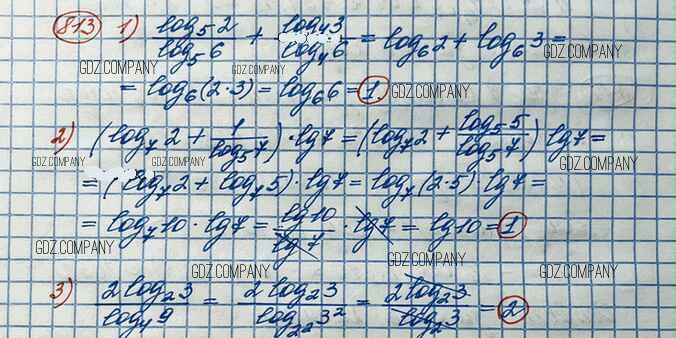 813 1) log₅2/log₅6 + log₄3/log₄6 = log₆2 + log₆3 =
GDZ.COMPANY GDZ.COMPANY GDZ.COMPANY
= log₆(2·3) = log₆6 = 1 GDZ.COMPANY
2) (log₇2 + 1/log₅7)·lg7 = (log₇2 + log₅5/log₅7) lg7 =
GDZ.COMPANY GDZ.COMPANY GDZ.COMPANY
= (log₇2 + log₇5)·lg7 = log₇(2·5) lg7 =
= log₇10·lg7 = lg10/lg7 · lg7 = lg10 = 1
GDZ.COMPANY GDZ.COMPANY GDZ.COMPANY
GDZ.COMPANY GDZ.COMPANY
3) 2log₂3/log₄9 = 2log₂3/log₂²3² = 2log₂3/log₂3 = 2